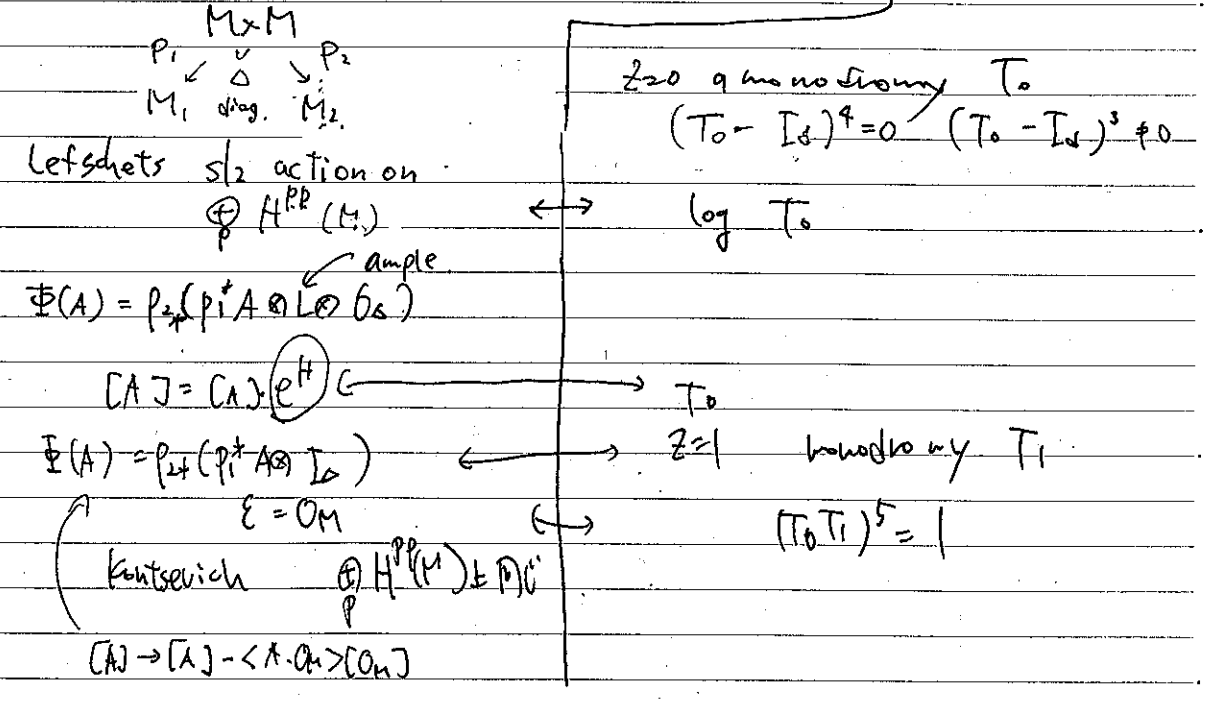 M×M
P₁ ∨ P₂
↙ Δ ↘
M₁ diag. M₂
Lefschets sl₂ action on
⊕ H^{p,p} (M)
p
ample
Φ(A) = p₂⁎(p₁*A ⊗ L ⊗ O_Δ)
[A] = [A]·e^H
Φ(A) = p₂⁎(p₁*A ⊗ I_Δ)
ε = O_M
Kontsevich ⊕ H^{pp}(M) 上の
p
[A] → [A] - <A.O_M>[O_M]
z=0 の monodromy T₀
(T₀ - Id)⁴ = 0 (T₀ - Id)³ ≠ 0
↔ log T₀
↔ T₀
↔ z=1 monodromy T₁
↔ (T₀T₁)⁵ = 1